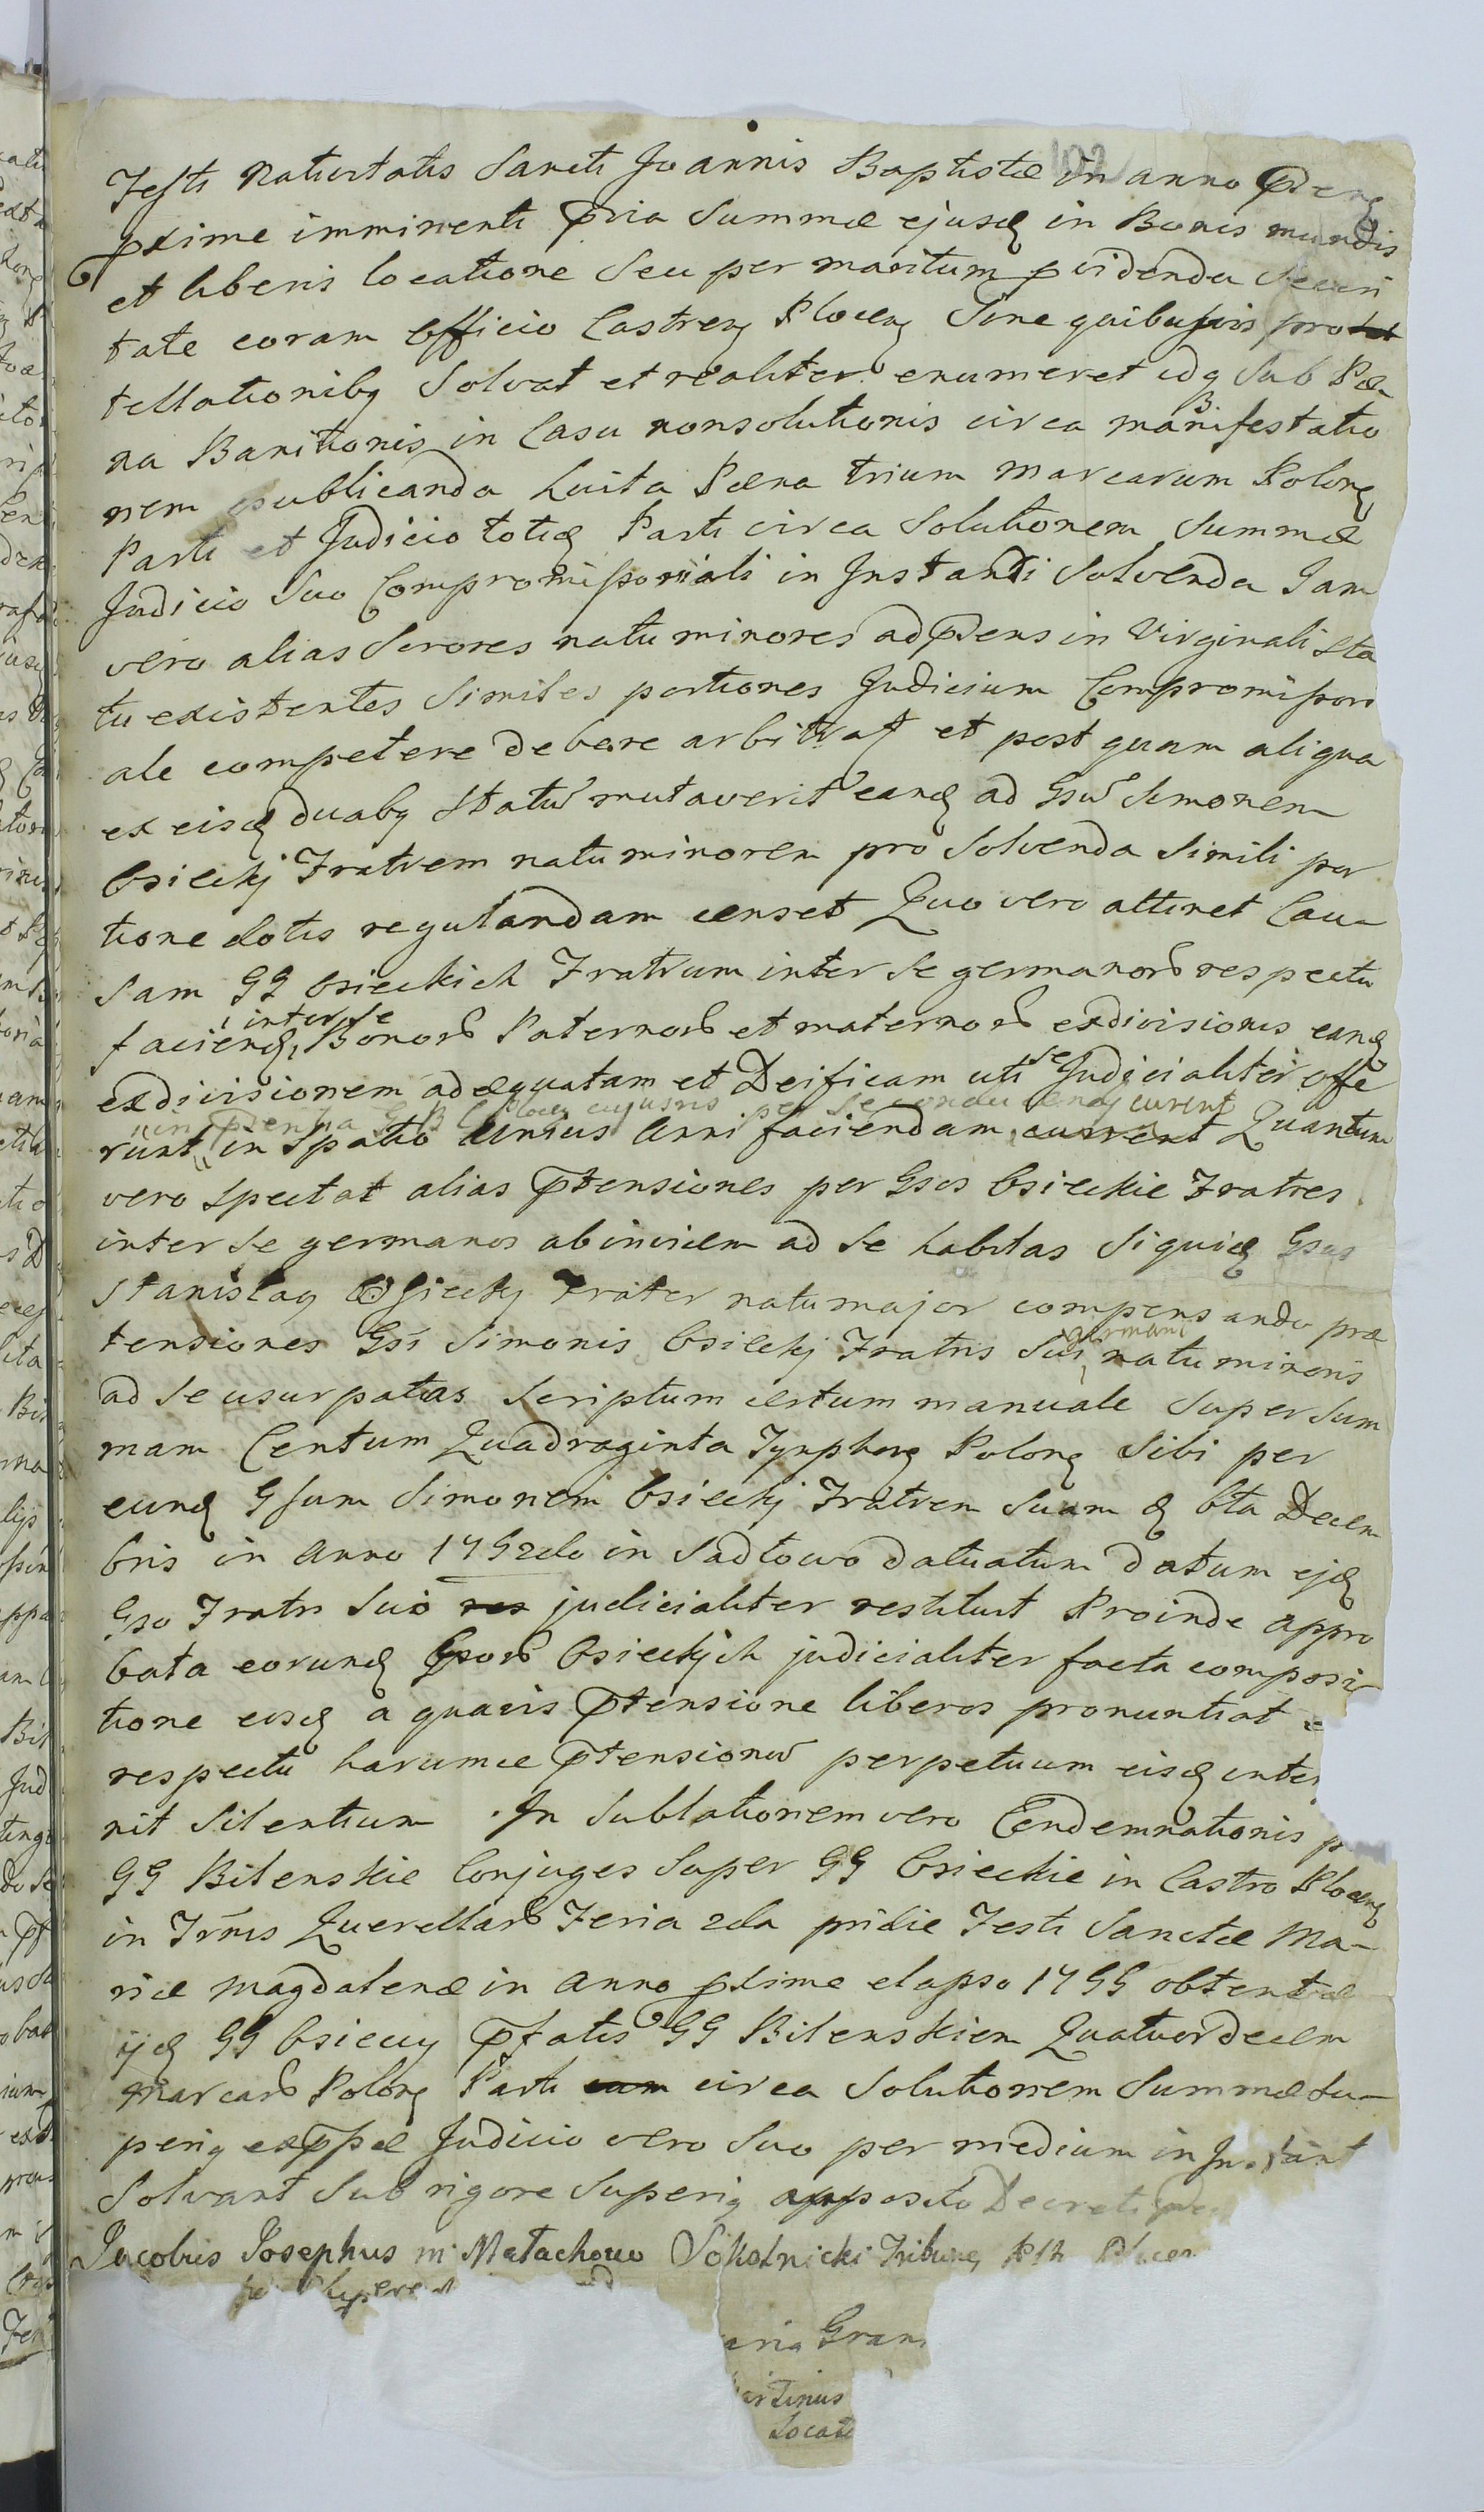 102
Festi Nativitatis Sancti Joannis Baptistæ in anno præsenꝫ
proxime imminenti pria Summæ ejusdꝫ in Bonis mundis
et liberis locatione Seu per maritum pvidenda Securi
tate coram Officio Castrenꝫ Plocenꝫ Sine quibusvis pro
tellationibꝫ Solvat et realiter enumeret idꝫ Sub Pæ-
na Banitionis in Casu nonsolutionis circa manifestatio
nem publicanda luita Pæna trium marcarum Polonꝫ
Parti et Judicio totidꝫ Parti circa Solutionem Summæ
Judicio Suo Compromissoriali in Instanti Solvenda Jam
vero alias Sorores natu minores ad præsens in Virginali Sta
tu existentes Similes portiones Judicium Compromissori
ale competere debere arbitrat et post quam aliqua
ex eisdꝫ duabꝫ Statum mutaverit eandꝫ ad Gsum Simonem
Osiecki Fratrem natu minorem pro Solvenda Simili por
tione dotis regulandam censet Quo vero attinet Cau-
sam GG Osieckich Fratrum inter Se germanorum respectu
faciendꝫ inter se Bonorum Paternorum et maternorum exdivisionis eandꝫ
exdivisionem adæquatam et Deificam uti se Judicialiter offe
runt in Spatio Unius Anni faciendam curent Quantum
vero Spectat alias prætensiones per Gsos Osieckie Fratres
inter Se germanos abinvicem ad Se habitas Siquidꝫ Gsus
Stanislaꝫ Osiecki Frater natu major compensando præ
tensiones Gsi Simonis Osiecki Fratris Sui germani natu minoris
ad Se usurpatas Scriptum certum manuale Super Sum
mam Centum Quadraginta Tynphonꝫ Polonꝫ Sibi per
eundꝫ Gsum Simonem Osiecki Fratrem Suum dꝫ 6ta Decem
bris in Anno 1752do in Sadłowo datuatum datum ejdꝫ
Gso Fratri Suo judicialiter restituit Proinde appro
bata eorundꝫ Gsorum Osieckich judicialiter facta composi
tione eosdꝫ a quavis prætensione liberos pronuntiat
respectu harumce prætensionum perpetuum eisdꝫ
nit Silentium. In Sublationem vero Condemnationis p
GG Bilenskie Conjuges Super GG Osieckie in Castro Plocenꝫ
in Trmis Querellarum Feria 2da pridie Festi Sanctæ Ma-
riæ Magdalenæ in anno proxime elapso 1755 obtentæ
ijdꝫ GG Osieccy præfatis GG Bilenskiem Quatuordecem
Marcarum Polonꝫ Parti circa Solutionem Summæ Su-
periꝫ expressæ Judicio vero Suo per medium in Instant
Solvant Sub rigore Superiꝫ apposito Decreti
Jacobus Josephus in Małachowo Sokolnicki Tribunꝫ
aria Gran
artinus
Locat